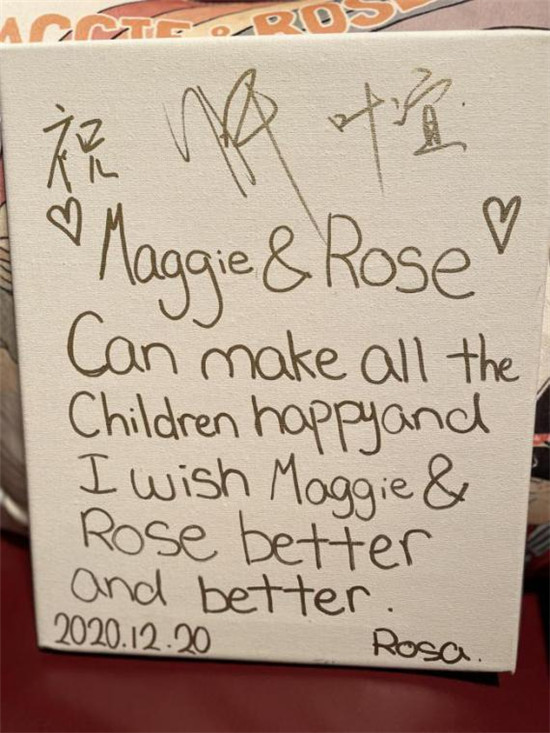 MAGGIE & ROSE
祝 叶宜
Maggie & Rose
Can make all the
Children happy and
I wish Maggie &
Rose better
and better.
2020.12.20 Rosa.